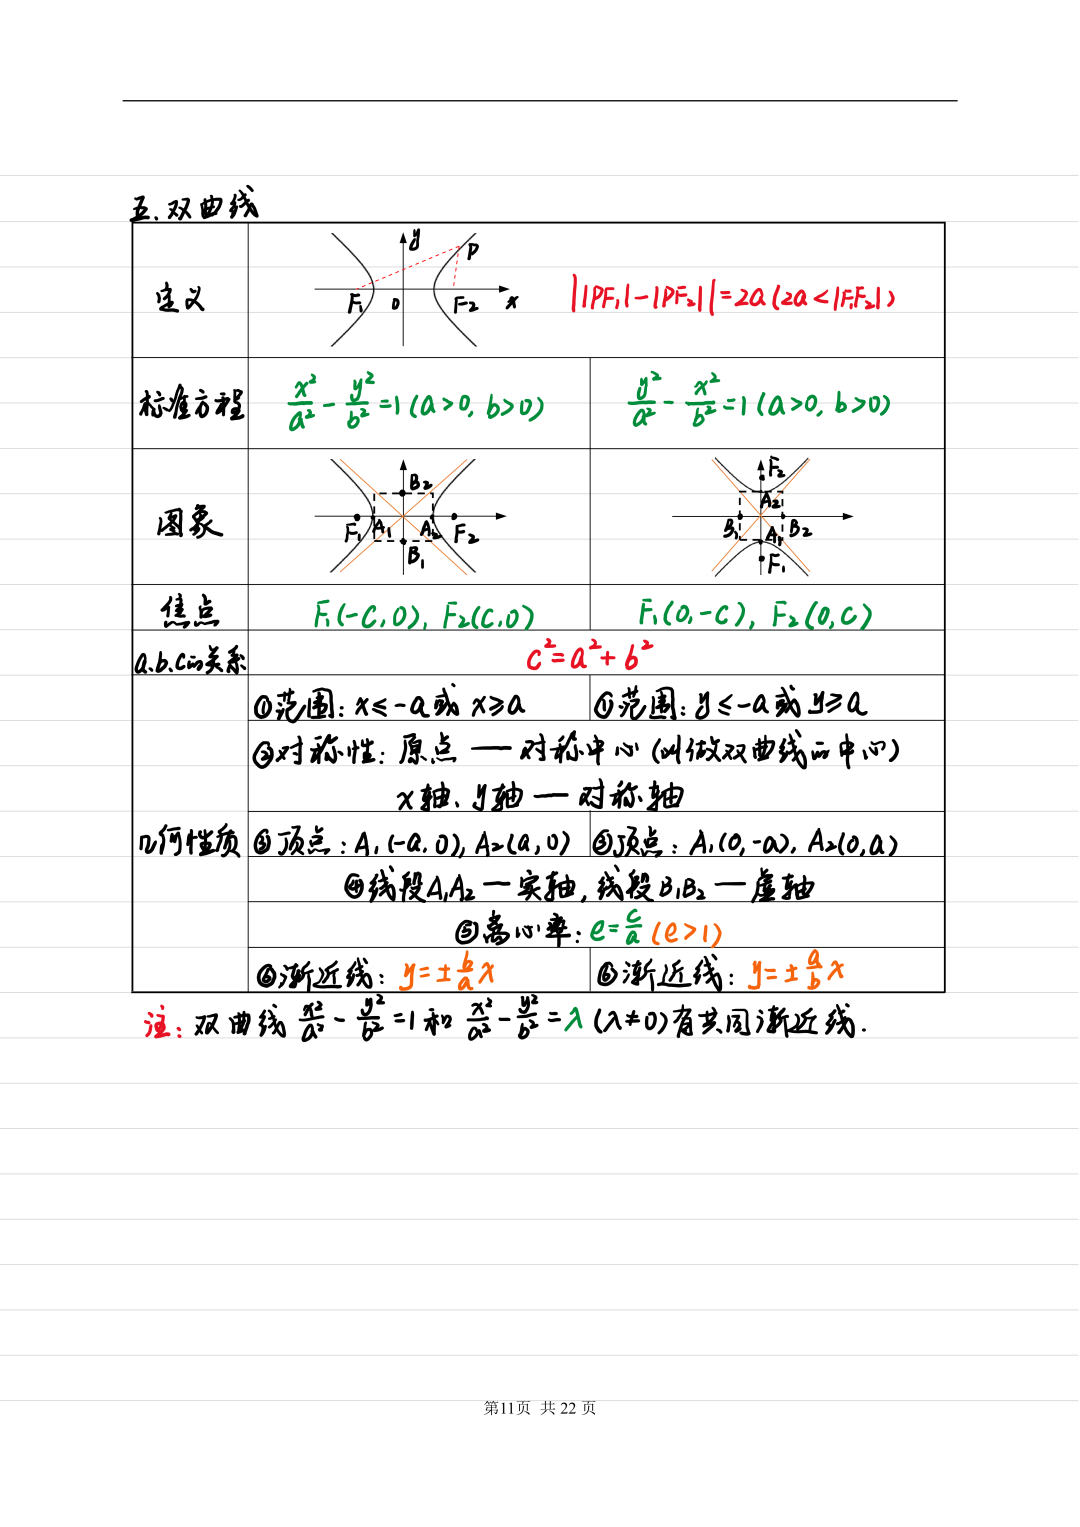 五、双曲线
定义
y
P
F₁ 0 F₂ x
||PF₁|-|PF₂||=2a(2a<|F₁F₂|)
标准方程
x²/a² - y²/b² =1(a>0, b>0)
y²/a² - x²/b² =1(a>0, b>0)
图象
B₂
F₁ A₁ A₂ F₂
B₁
F₂
A₂
B₁ B₂
A₁
F₁
焦点
F₁(-c,0), F₂(c,0)
F₁(0,-c), F₂(0,c)
a.b.c的关系
c²=a²+b²
几何性质
①范围: x≤-a或 x≥a
①范围: y≤-a或 y≥a
②对称性: 原点 — 对称中心(叫做双曲线的中心)
x轴、y轴 — 对称轴
③顶点: A₁(-a,0), A₂(a,0)
③顶点: A₁(0,-a), A₂(0,a)
④线段A₁A₂ — 实轴, 线段B₁B₂ — 虚轴
⑤离心率: e=c/a (e>1)
⑥渐近线: y=±b/a x
⑥渐近线: y=±a/b x
注: 双曲线 x²/a² - y²/b² =1 和 x²/a² - y²/b² =λ (λ≠0)有共同渐近线.
第11页 共 22 页